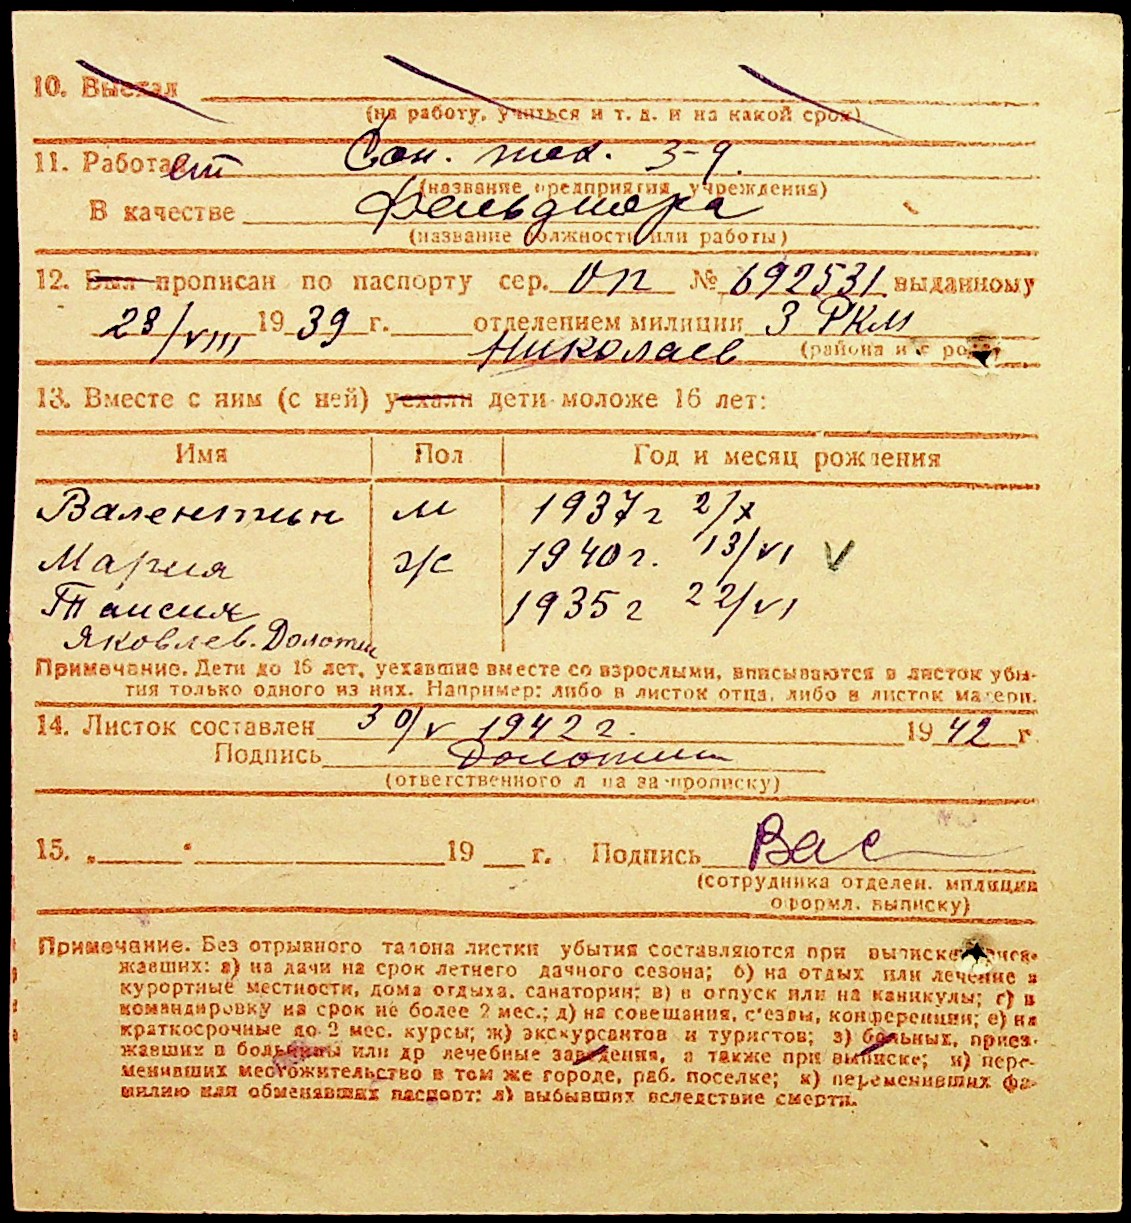 10. Выехал
(на работу, учиться и т. д. и на какой срок)
11. Работает Сан. тех. 3-9.
(название предприятия, учреждения)
В качестве Фельдшера
(название должности или работы)
12. Был прописан по паспорту сер. ОП № 692531 выданному
28/VIII 19 39 г. отделением милиции 3 РКМ
Николаев (района и города)
13. Вместе с ним (с ней) уехали дети моложе 16 лет:
Имя Пол Год и месяц рождения
Валентин м 1937 г 2/X
Мария ж 1940 г. 13/VI V
Таисия 1935 г 22/VI
Яковлев.
Примечание. Дети до 16 лет, уехавшие вместе со взрослыми, вписываются в листок убы-
тия только одного из них. Например: либо в листок отца, либо в листок матери.
14. Листок составлен 30/V 1942 г. 19 42 г.
Подпись
(ответственного л на за прописку)
15. „ “ 19 г. Подпись Вас
(сотрудника отделен. милиции
оформл. выписку)
Примечание. Без отрывного талона листки убытия составляются при выписке приез-
жавших: а) на дачи на срок летнего дачного сезона; б) на отдых или лечение в
курортные местности, дома отдыха, санатории; в) в отпуск или на каникулы; г) в
командировку на срок не более 2 мес.; д) на совещания, с'езды, конференции; е) на
краткосрочные до 2 мес. курсы; ж) экскурсантов и туристов; з) больных, приез-
жавших в больницы или др лечебные заведения, а также при выписке; и) пере-
менивших местожительство в том же городе, раб. поселке; к) переменивших фа-
милию или обменявших паспорт; л) выбывших вследствие смерти.